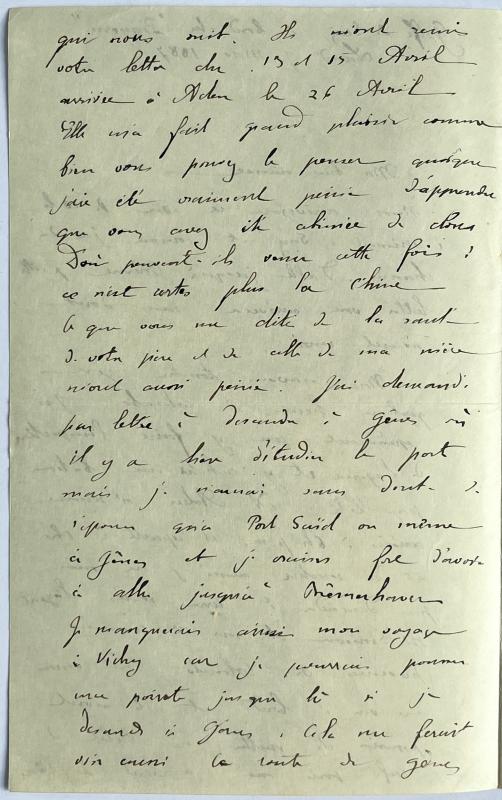 qui nous suit. Ils m'ont remis
votre lettre du 13 et 15 Avril
arrivée à Aden le 26 Avril
Elle m'a fait grand plaisir comme
bien vous pouvez le penser quoique
j'aie été vraiment peiné d'apprendre
que vous avez été abimée de clous
D'où peuvent-ils venir cette fois ?
ce n'est certes plus la Chine
Ce que vous me dites de la santé
de votre père et de celle de ma mère
m'ont aussi peiné. J'ai demandé
par lettre à descendre à Gênes où
il y a lieu d'étudier le port
mais je n'aurai sans doute de
réponse qu'à Port Saïd ou même
à Gênes et je crains fort d'avoir
à aller jusqu'à Brêmerhaven
Je manquerais ainsi mon voyage
à Vichy car je pourrais pousser
une pointe jusque là si je
descends à Gênes. Cela me ferait
voir aussi la route de Gênes